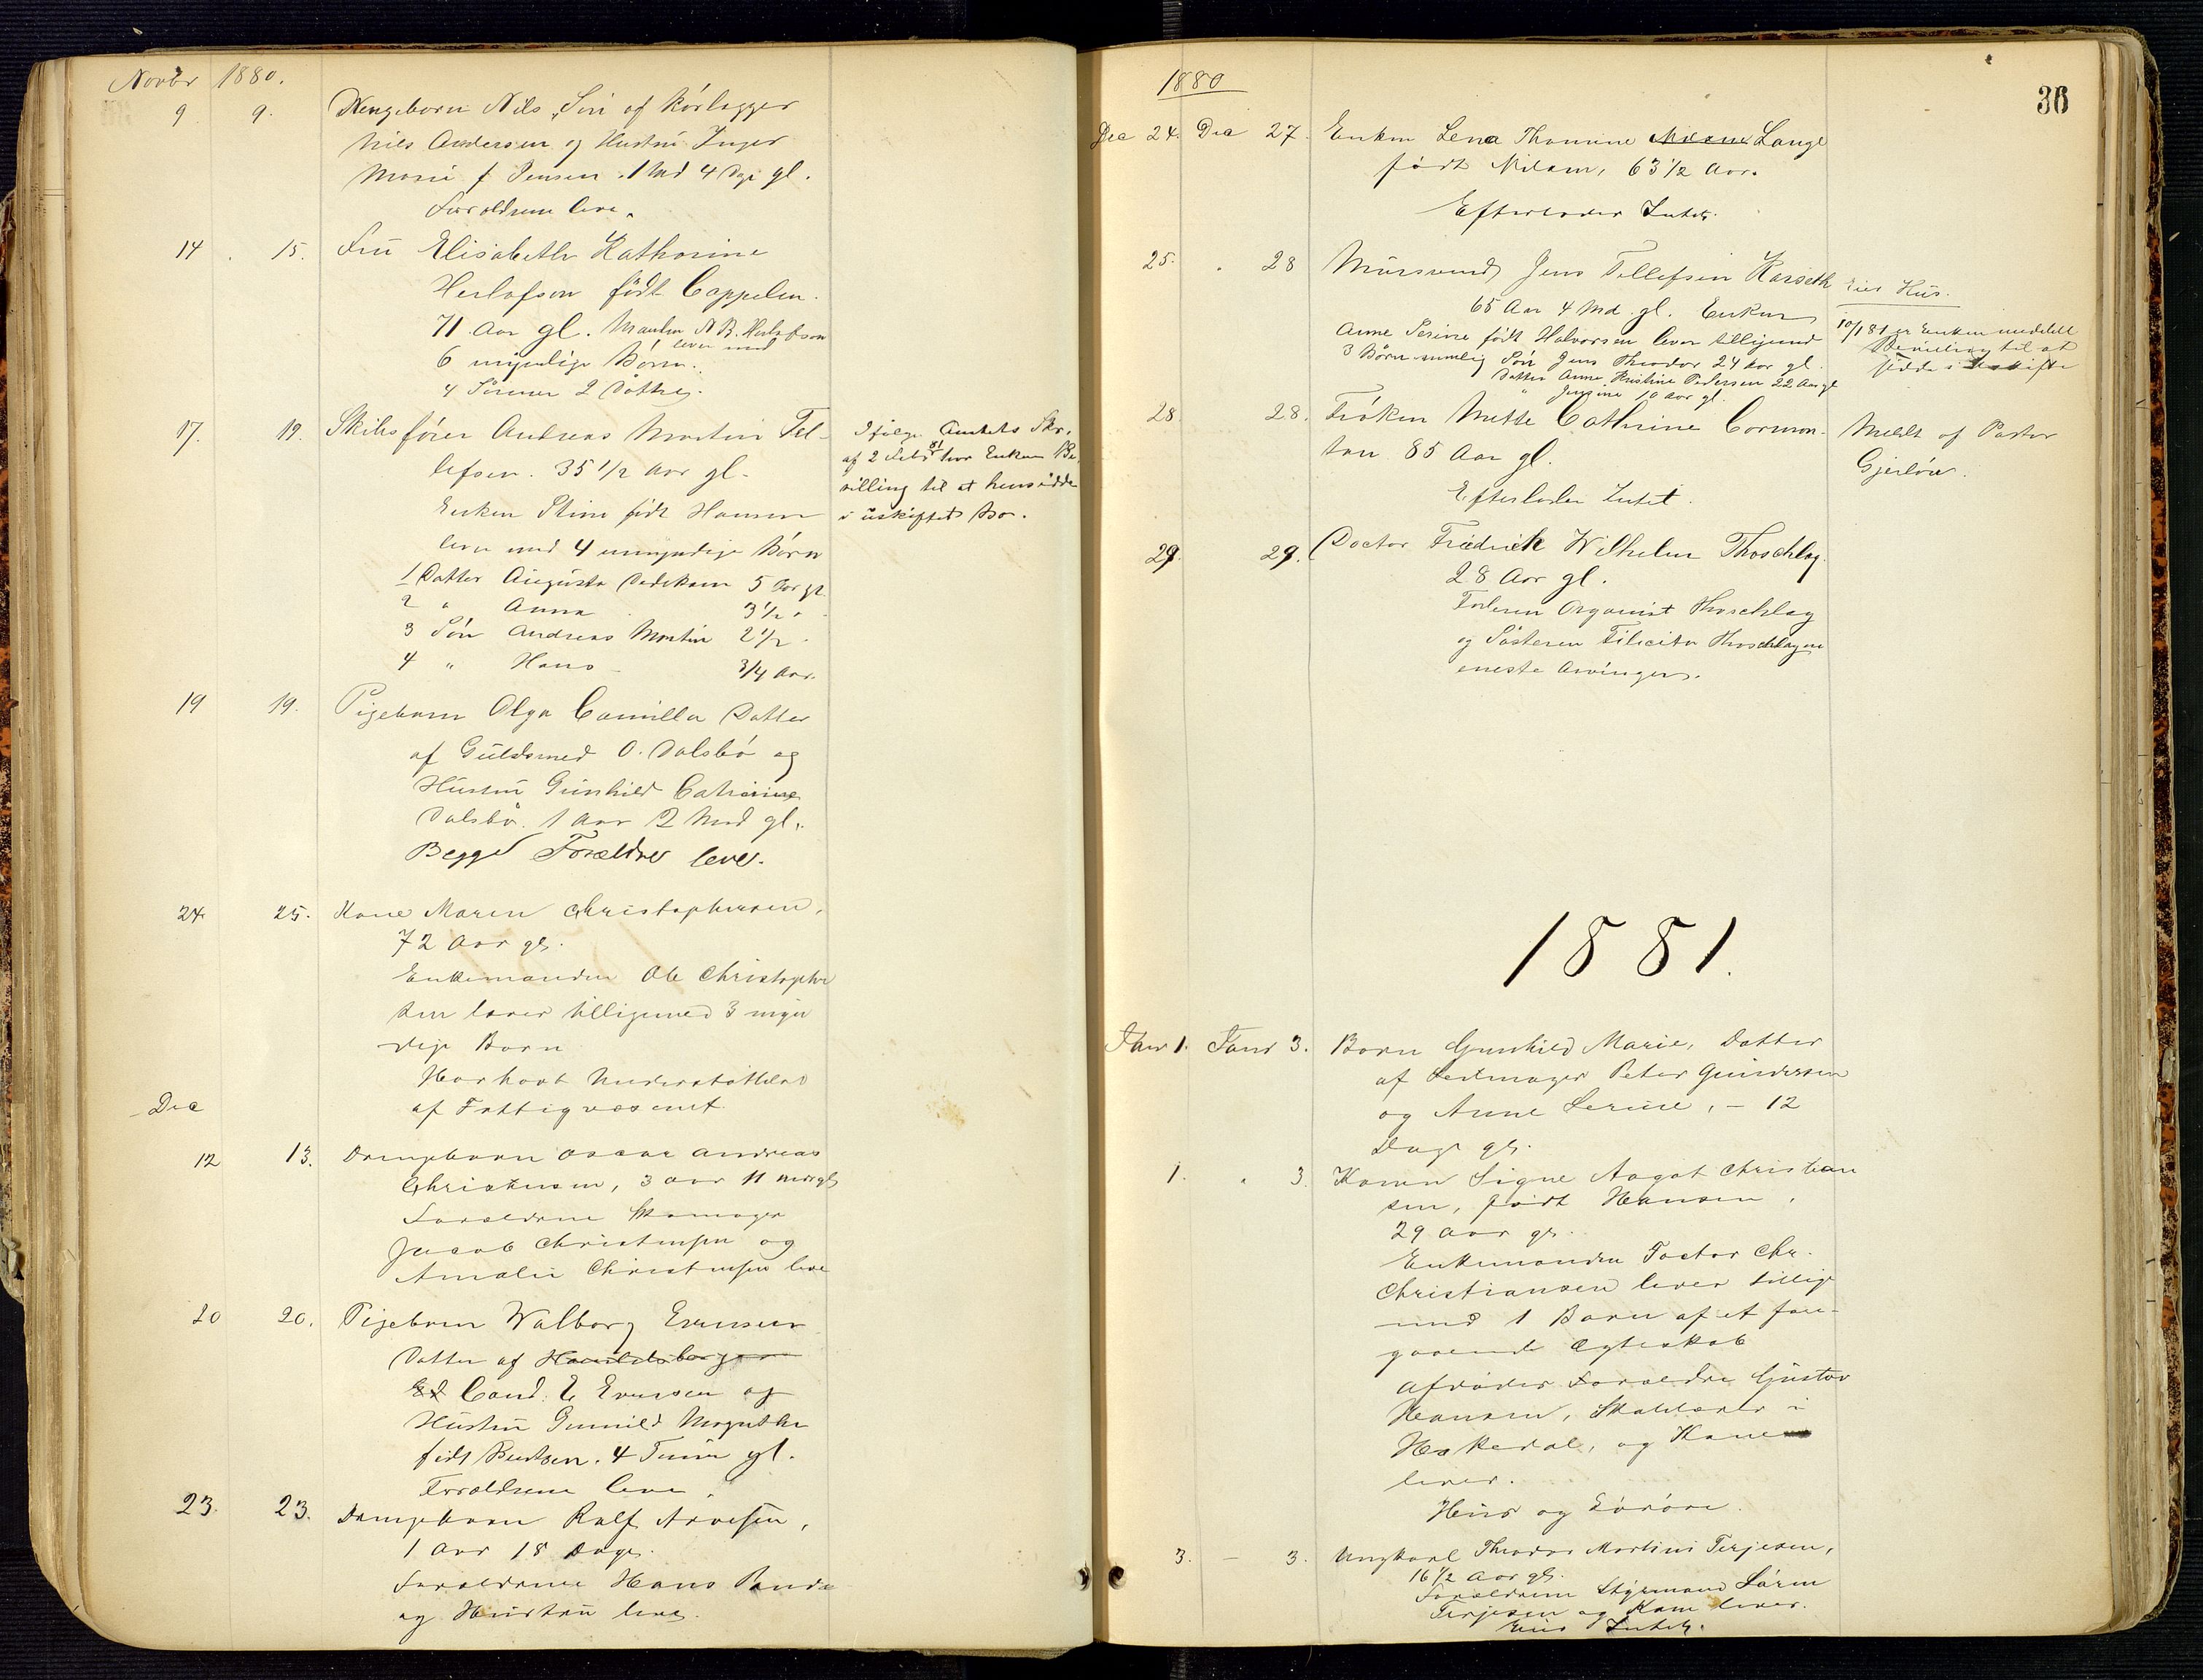 Novbr 1880.
9 9. Drengebarn Nils, Søn af
Nils Andersen og Hustru Inger
Marie f Jensen. 1 Md 4 Dge gl.
Forældrene leve.
14 . 15. Frü Elisabeth Kathorine
Herlofson født Cappelen.
71 Aar gl. Manden N B. Herlofson
lever med
6 myndige Børn.
4 Sønner 2 Døttre.
17. 19. Skibsfører Andreas Martin Tel-
lefsen. 35 1/2 Aar gl.
Enken Stine født Hansen
lever med 4 umyndige Børn
1 Datter Augusta Dedekam 5 Aar gl
2 " Anna 3 1/2 "
3 Søn Andreas Martin 2 1/2
4 " Hans 3/4 Aar.
Ifølge Amtets Skr.
af 2 Febr 81 har Enken Be
villing til at hensidde
i üskiftet Bo.
19 19. Pigebarn Olga Camilla Datter
af Güldsmed O. Dalsbö og
Hüstrü Günhild Cathrine
Dalsbö. 1 Aar 2 Md gl.
Begge Forældre lever.
24 25. Kone Maren Christophersen,
72 Aar gl.
Enkemanden Ole Christopher
sen lever tilligemed 3 myn
dige Børn
Har havt Understøttelse
af Fattigvæsenet.
Dec
12 13. Drengebarn Oscar Andreas
Christensen, 3 Aar 11 Mdr gl
Forældrene Skomager
Jacob Christensen og
Amalie Christensen leve
20 20. Pigebarn Walborg Evensen
Datter af
Cand. E Evensen og
Hüstrü Gunild Margrethe
født Bentsen. 4 Timer gl.
Forældrene leve.
23. 23. Drengebarn Ralf Arvesen,
1 Aar 18 Dage.
Forældrene Hans
og Hüstrü leve.
36
1880
Dec 24. Dec 27. Enken Lena Thomine Lange
født Nilsen, 63 1/2 Aar.
Efterlader Intet.
25. " 28 Mürsvend Jens Tellefsen Harseth
65 Aar 4 Md gl. Enken
Anne Serine født Halvorsen lever tilligemed
3 Børn nemlig Søn Jens Theodor 24 Aar gl.
Datter Anne Kristine Pedersen 22 Aar gl
" Jensine 10 Aar gl.
Eier Hüs.
10/1 81 er Enken meddelt
Bevilling til at
sidde i Uskifte
28. 28. Frøken Mette Cathrine Cormon-
tan 85 Aar gl.
Efterlader Intet.
Meldt af Pastor
Gjerløw.
29. 29. Doctor Fredrick Wilhelm Thoschlag.
28 Aar gl.
Faderen Organist Thoschlag
og Søsteren Filicita Thoschlag ere
eneste Arvinger.
1881.
Janr 1. Janr 3. Barn Gunhild Marie, Datter
af Seilmager Peter Gündersen
og Anne Serine, – 12
Dage gl.
1. " 3. Konen Signe Aagot Christian
sen, født Hansen,
29 Aar gl.
Enkemanden Toctor Chr.
Christiansen lever tillige
med 1 Barn af et fore-
gaaende Ægteskab
Afdødes Forældre Güstav
Hansen, i
Heskedal, og Kone
lever.
Hüs og Løsøre.
3. – 3. Ungkarl Theodor Martini Terjesen,
16 1/2 Aar gl.
Forældrene Styrmand Søren
Terjesen og Kone lever.
Eier Intet.